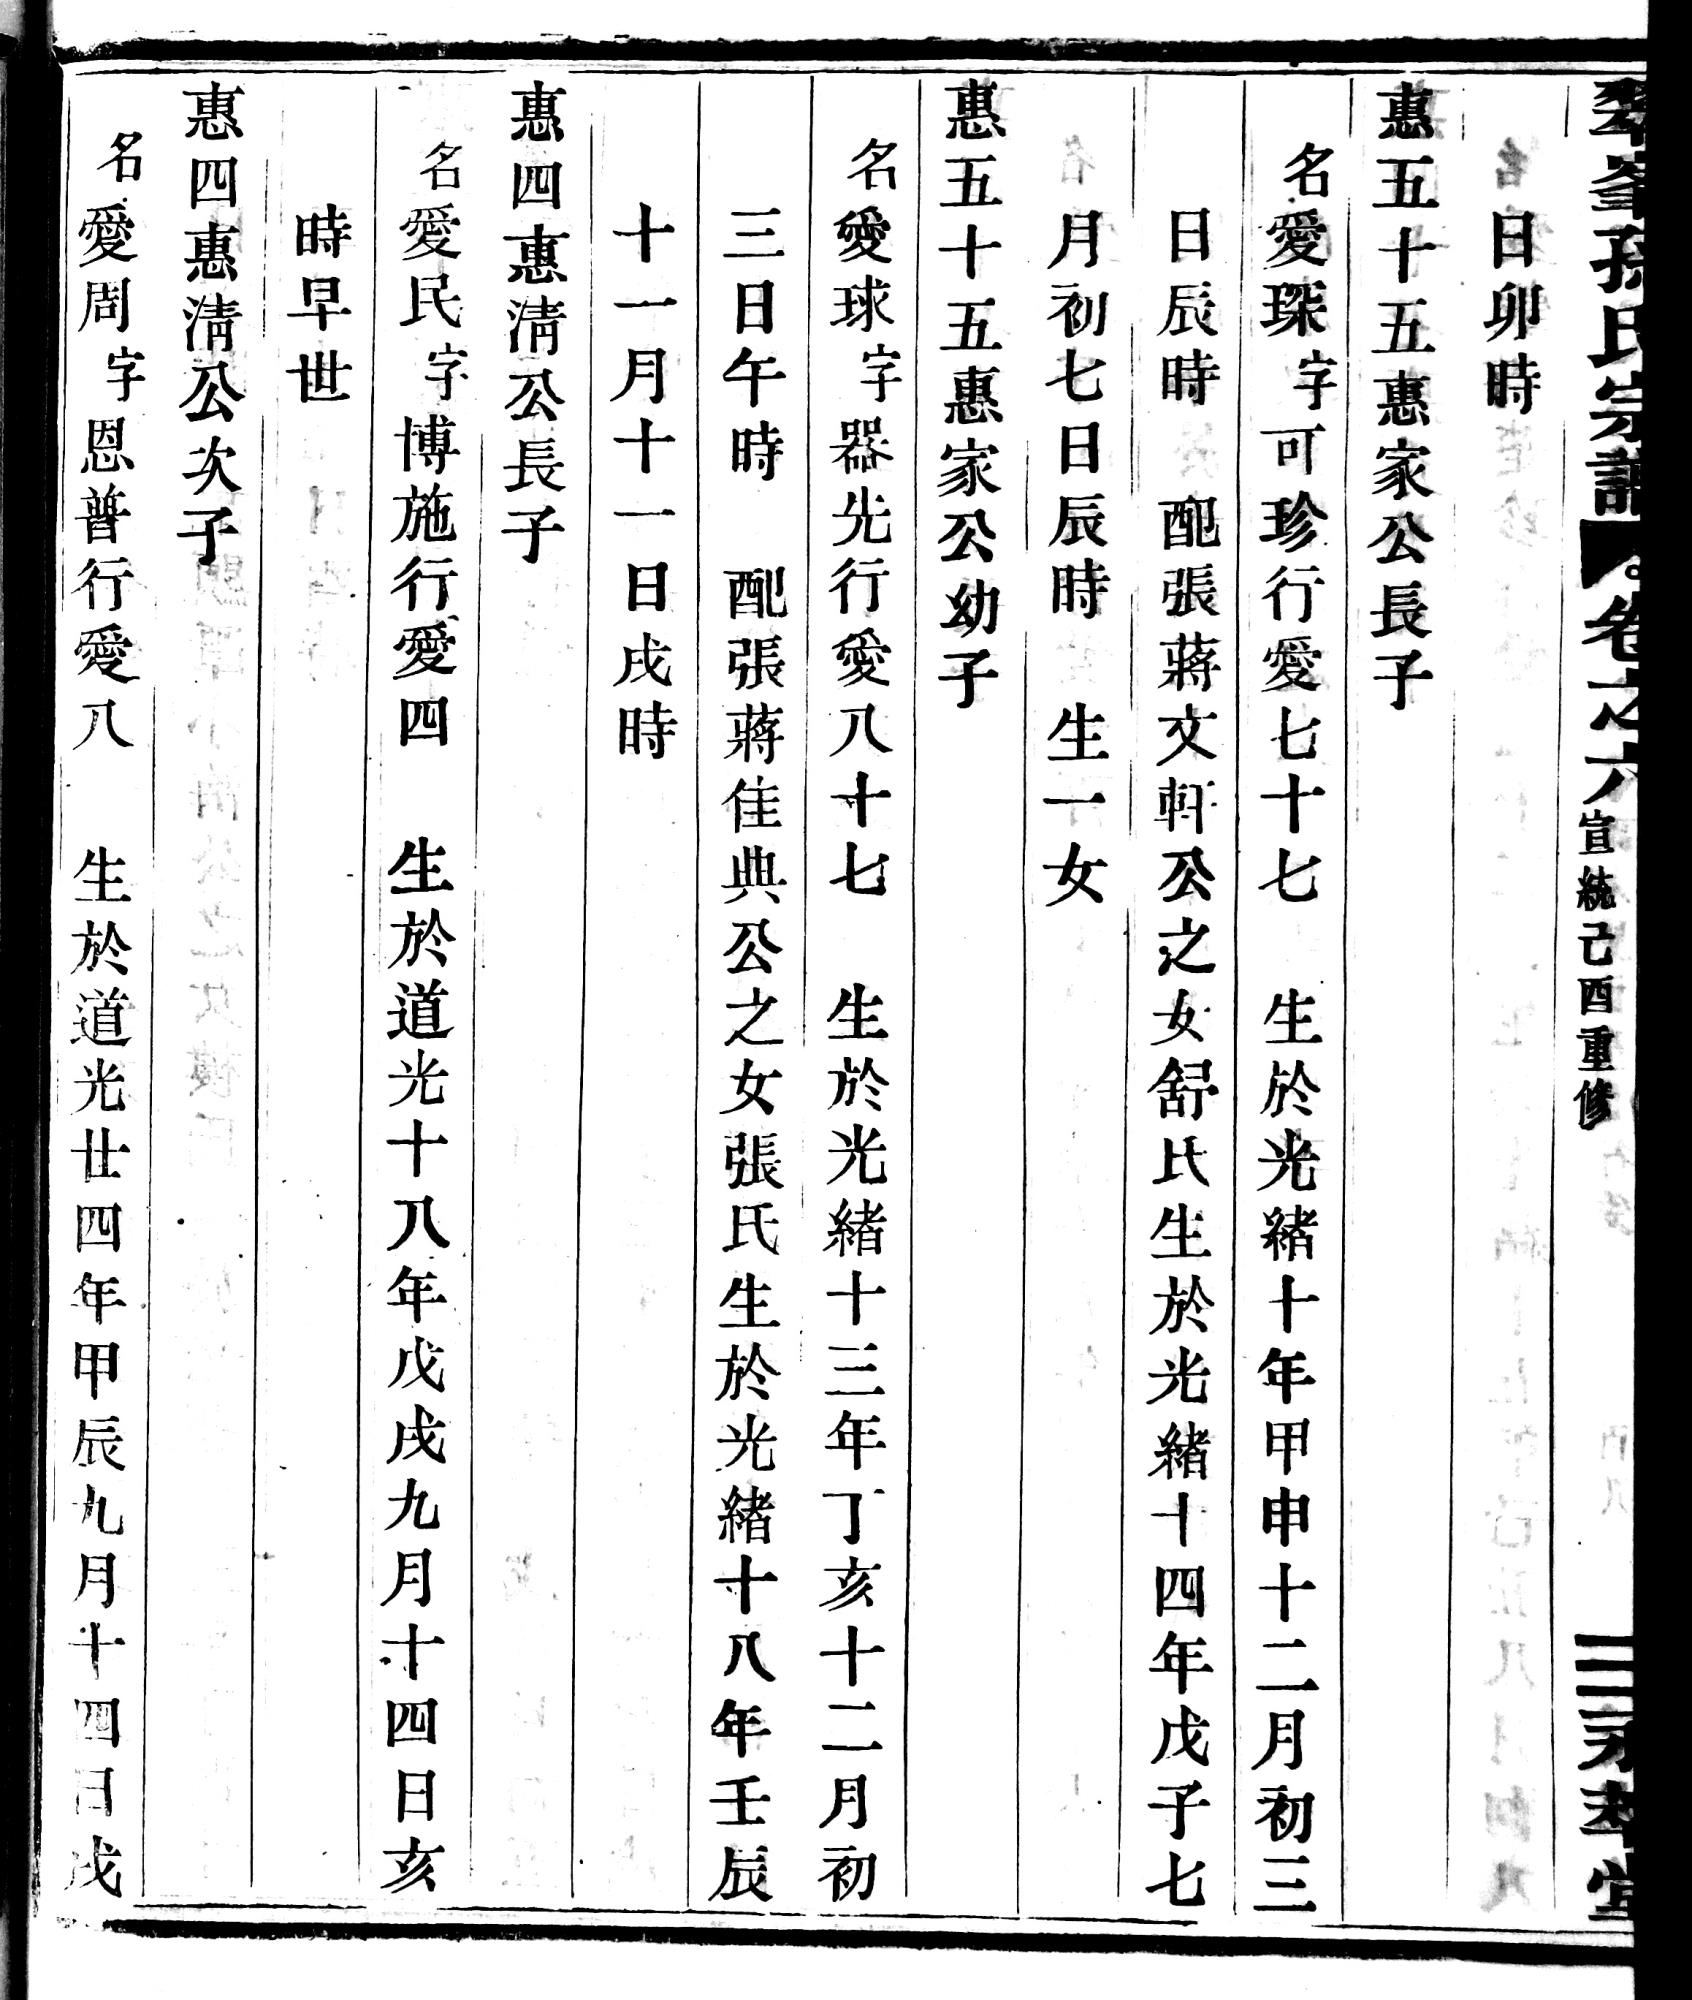 峯孫氏宗譜 卷之六 宣統己酉重修 三 堂
日卯時
惠五十五惠家公長子
名愛琛字可珍行愛七十七 生於光緒十年甲申十二月初三
日辰時 配張蔣文軒公之女舒氏生於光緒十四年戊子七
月初七日辰時 生一女
惠五十五惠家公幼子
名愛球字器先行愛八十七 生於光緒十三年丁亥十二月初
三日午時 配張蔣佳典公之女張氏生於光緒十八年壬辰
十一月十一日戌時
惠四惠淸公長子
名愛民字博施行愛四 生於道光十八年戊戌九月十四日亥
時早世
惠四惠淸公次子
名愛周字恩普行愛八 生於道光廿四年甲辰九月十四日戌